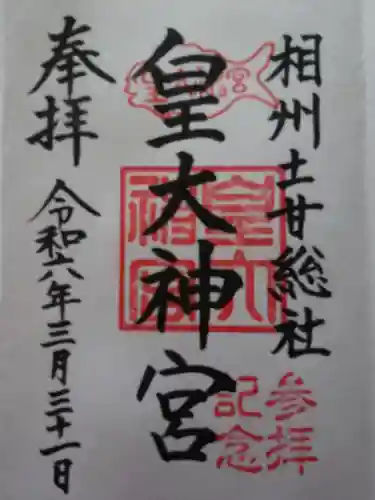 相州土甘総社
皇大神宮
奉拝
令和六年三月三十一日
皇大神宮
参拝
記念